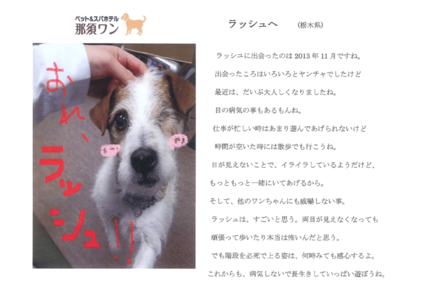 ペット&スパホテル
那須ワン
おれ、
ラッシュ!!
ラッシュへ (栃木県)
ラッシュに出会ったのは2013年11月ですね。
出会ったころはいろいろとヤンチャでしたけど
最近は、だいぶ大人しくなりましたね。
目の病気の事もあるもんね。
仕事が忙しい時はあまり遊んであげられないけど
時間が空いた時には散歩でも行こうね。
目が見えないことで、イライラしているようだけど、
もっともっと一緒にいてあげるから。
そして、他のワンちゃんにも威嚇しない事。
ラッシュは、すごいと思う。両目が見えなくなっても
頑張って歩いたり本当は怖いんだと思う。
でも階段を必死で上る姿は、何時みても感心するよ。
これからも、病気しないで長生きしていっぱい遊ぼうね。